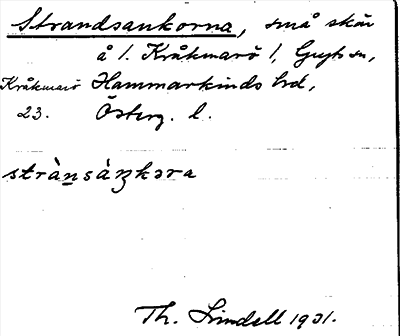 Strandsankorna, små skär
å 1. Kråkmarö 1, Gryts sn,
Kråkmarö Hammarkinds hd,
23. Österg. l.
strànsáŋkəra
Th. Lindell 1931.